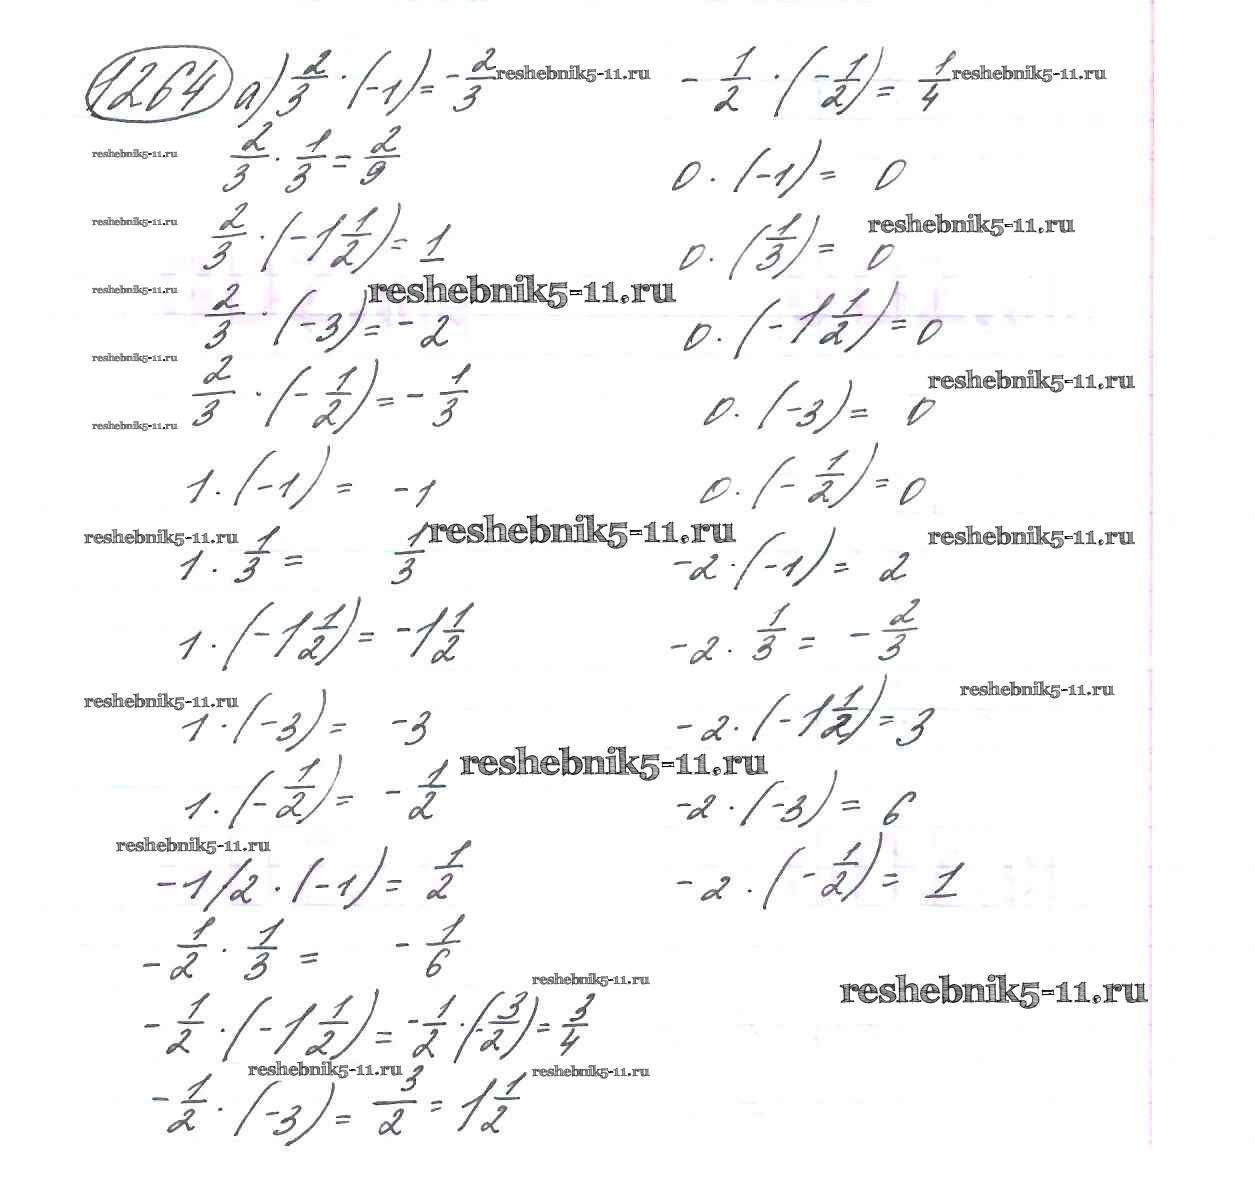 1264 а) 2/3 · (-1) = -2/3
reshebnik5-11.ru
reshebnik5-11.ru
2/3 · 1/3 = 2/9
reshebnik5-11.ru
2/3 · (-1 1/2) = 1
reshebnik5-11.ru
2/3 · (-3) = -2
reshebnik5-11.ru
reshebnik5-11.ru
2/3 · (-1/2) = -1/3
reshebnik5-11.ru
reshebnik5-11.ru
1 · (-1) = -1
reshebnik5-11.ru
reshebnik5-11.ru
1 · 1/3 = 1/3
1 · (-1 1/2) = -1 1/2
reshebnik5-11.ru
1 · (-3) = -3
reshebnik5-11.ru
1 · (-1/2) = -1/2
reshebnik5-11.ru
-1/2 · (-1) = 1/2
-1/2 · 1/3 = -1/6
reshebnik5-11.ru
-1/2 · (-1 1/2) = -1/2 · (-3/2) = 3/4
reshebnik5-11.ru
reshebnik5-11.ru
-1/2 · (-3) = 3/2 = 1 1/2
-1/2 · (-1/2) = 1/4
reshebnik5-11.ru
0 · (-1) = 0
reshebnik5-11.ru
0 · (1/3) = 0
0 · (-1 1/2) = 0
reshebnik5-11.ru
0 · (-3) = 0
0 · (-1/2) = 0
reshebnik5-11.ru
-2 · (-1) = 2
-2 · 1/3 = -2/3
reshebnik5-11.ru
-2 · (-1 1/2) = 3
-2 · (-3) = 6
-2 · (-1/2) = 1
reshebnik5-11.ru